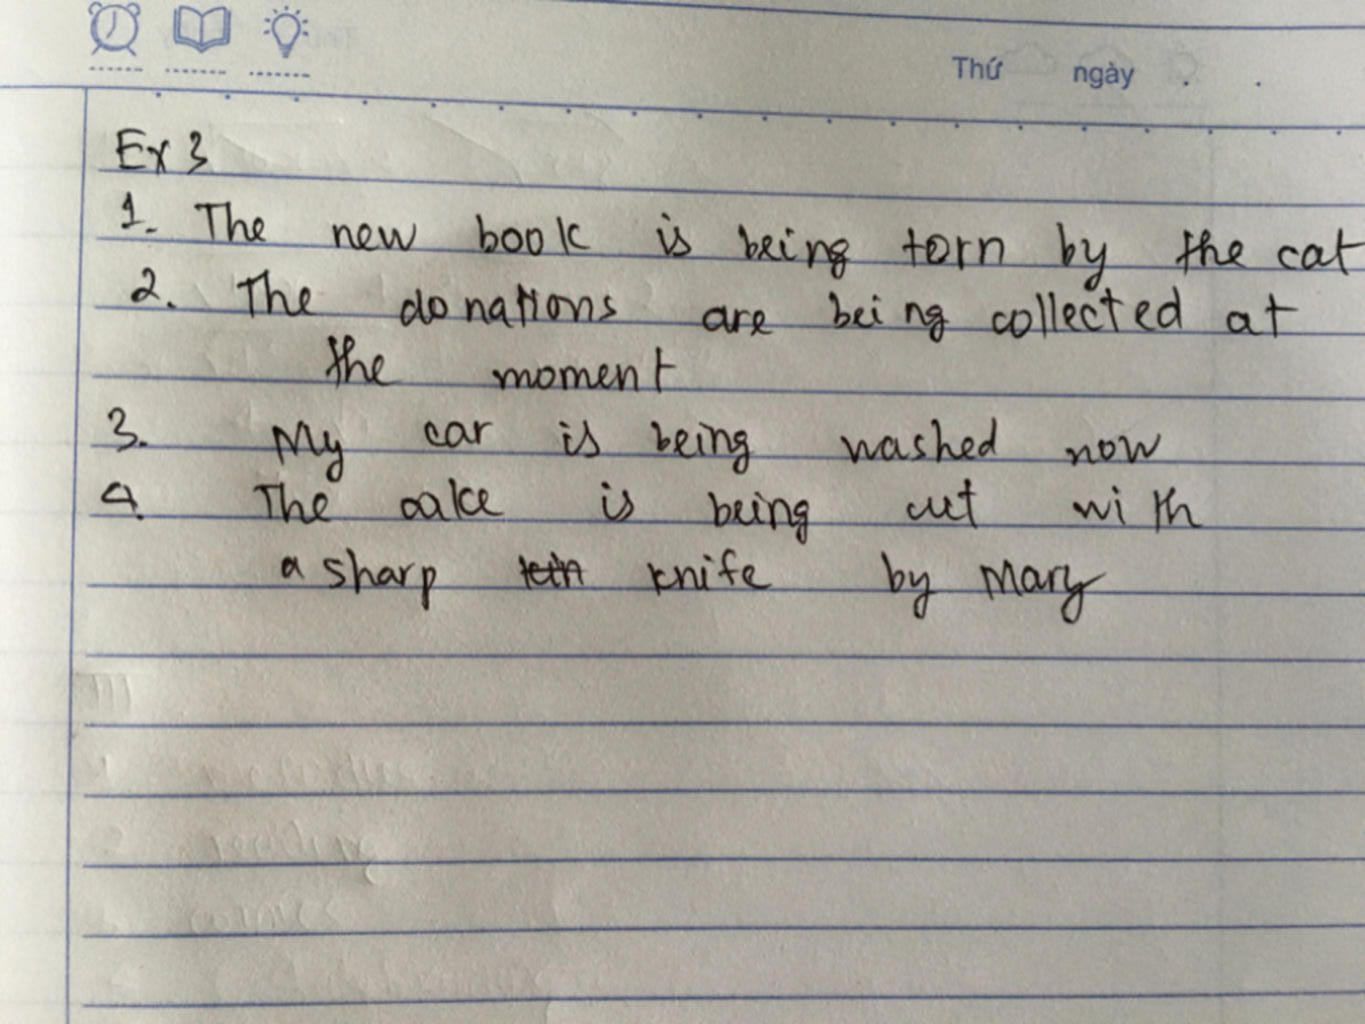 Thứ ngày . .
Ex 3
1. The new book is being torn by the cat
2. The donations are being collected at
the moment
3. My car is being washed now
4. The cake is being cut with
a sharp knife by Mary